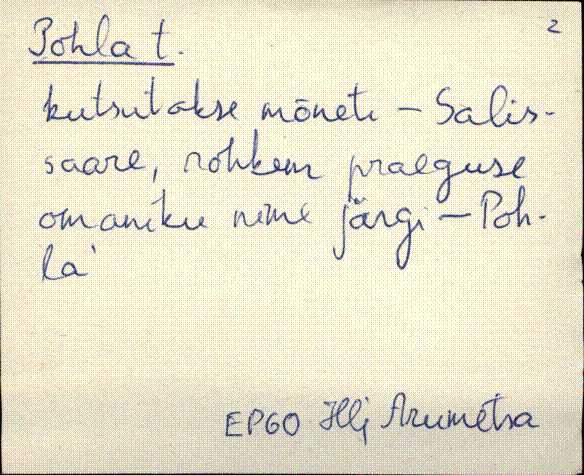 2
Pohla t.
kutsutakse mõneti - Salis-
saare, rohkem praeguse
omaniku nime järgi - Poh-
la'
EPGO Illj Arumetsa